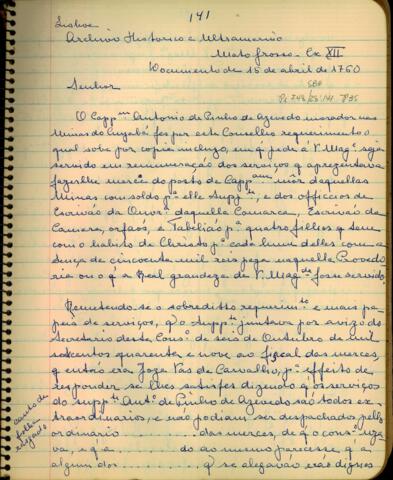 141
Lisboa
Archivo Historico e Ultramarino
Matto grosso - Cx XII
Documento de 15 de abril de 1760
Senhor
O Cappᵐ Antonio de Pinho de Azevedo morador nas
Minas do Cuyabá fes por este Conselho requerimento o
qual sobe por copia incluzo, em q̃ pede á V. Magᵉ seja
servido em remuneração dos serviços q̃ apresentava
fazerlhe merce do posto de Cappᵃᵐ mór daquellas
Minas com soldo pᵃ elle Suppᵗᵉ, e dos officcios de
Escrivão da Ouvʳᵃ daquella Comarca, Escrivão da
Camera, orfaõs, e Tabeliaõ pᵃ quatro filhos q̃ tem
com o habito de Christo pᵃ cada hum delles com a
tença de cincoenta mil reis paga naquella Provedo
ria ou o q̃ a Real grandeza de V. Magᵈᵉ fosse servido.
Remetendo-se o sobreditto requerimᵗᵒ e mais pa
peis de serviços, q̃ o Suppᵗᵉ juntava por avizo do
Secretario deste Consᵒ de seis de Outubro de mil
setecentos quarenta e nove ao fiscal das merces,
q̃ entaõ era Joze Vas de Carvalho, pᵃ effeito de
responder se lhes satisfes dizendo q̃ os serviços
do suppᵗᵉ Antᵒ de Pinho de Azevedo saõ todos ex
traordinarios, e não podiam ser despachados pello
ordinario ........... das merces, de q̃ o cons... 
va, e q̃ a ....... do ao mesmo parecesse, q̃ a
algum dos ............, q̃ se alegavaõ eraõ dignos
canto de
folha
rasgado